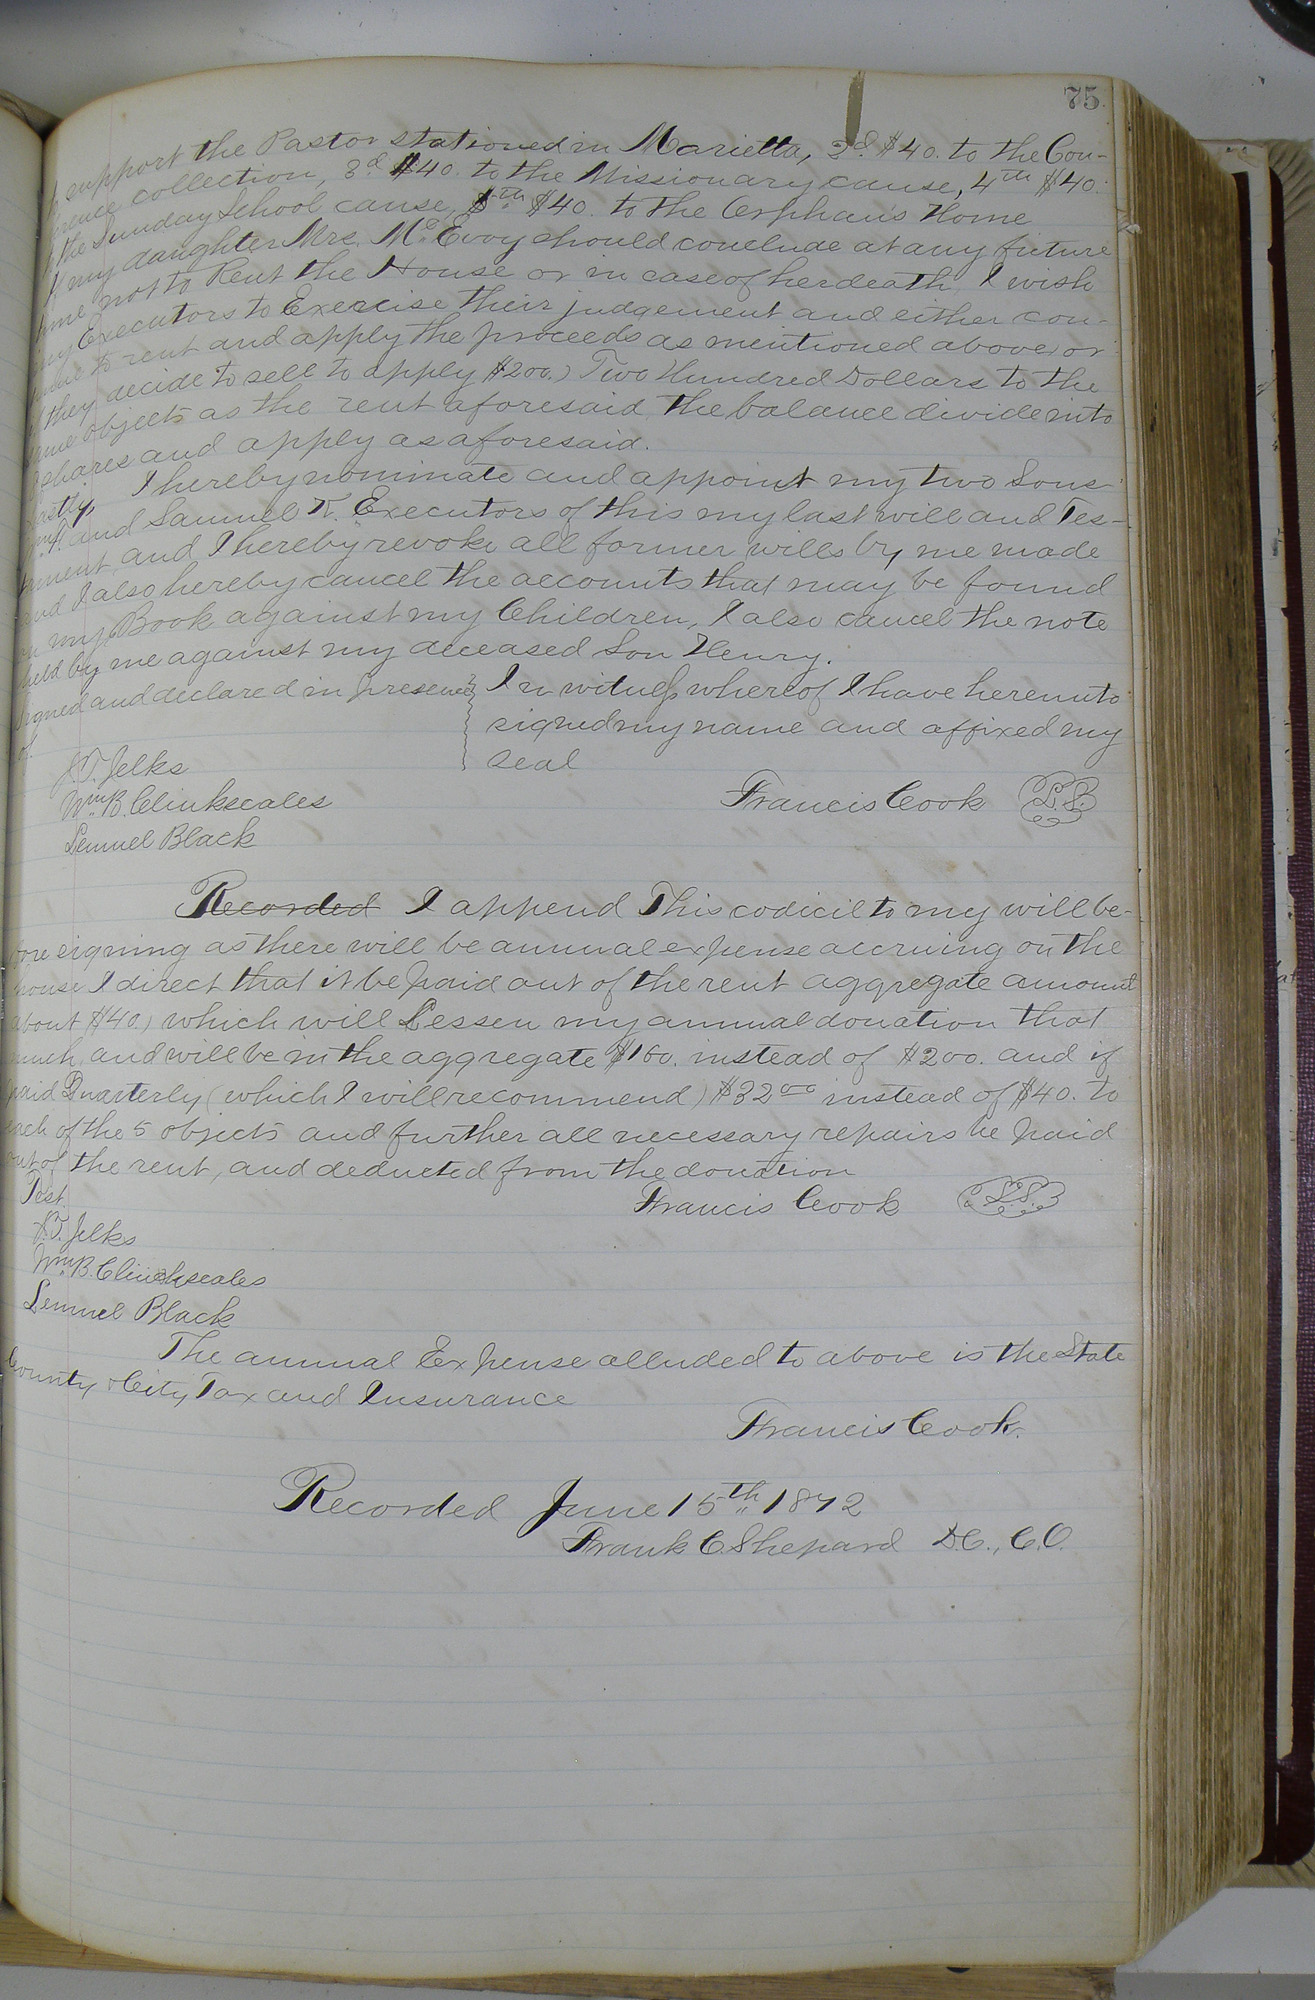 75
support the Pastor stationed in Marietta, 2d. $40. to the Con-
ference collection, 3d $40. to the Missionary cause, 4th $40.
the Sunday School cause, 5th $40. to the Orphans Home
If my daughter Mrs. McEvoy should conclude at any future
time not to Rent the House or in case of her death, I wish
my Executors to Exercise their judgement and either con-
tinue to rent and apply the proceeds as mentioned above or
if they decide to sell to apply $200.) Two Hundred Dollars to the
same objects as the rent aforesaid the balance divide into
shares and apply as aforesaid.
Lastly, I hereby nominate and appoint my two Sons
and Samuel K. Executors of this my last will and Tes-
tament and I hereby revoke all former wills by me made
and I also hereby cancel the accounts that may be found
on my Book against my Children, I also cancel the note
held by me against my deceased Son Henry.
Signed and declared in presence In witness whereof I have hereunto
of signed my name and affixed my
seal
J.T. Jelks
Wm. B. Clinkscales Francis Cook L.S.
Lemuel Black
Recorded I append This codicil to my will be-
fore signing as there will be annual expense accruing on the
house I direct that it be paid out of the rent aggregate amount
about $40.) which will Lessen my annual donation that
much, and will be in the aggregate $160. instead of $200. and if
paid Quarterly (which I will recommend) $32.00 instead of $40. to
each of the 5 objects and further all necessary repairs be paid
out of the rent, and deducted from the donation
Test. Francis Cook L.S.
J.T. Jelks
Wm. B. Clinchscales
Lemuel Black
The annual Expense alluded to above is the State
County & City Tax and Insurance
Francis Cook.
Recorded June 15th 1872
Frank C. Shepard D.C., C.O.